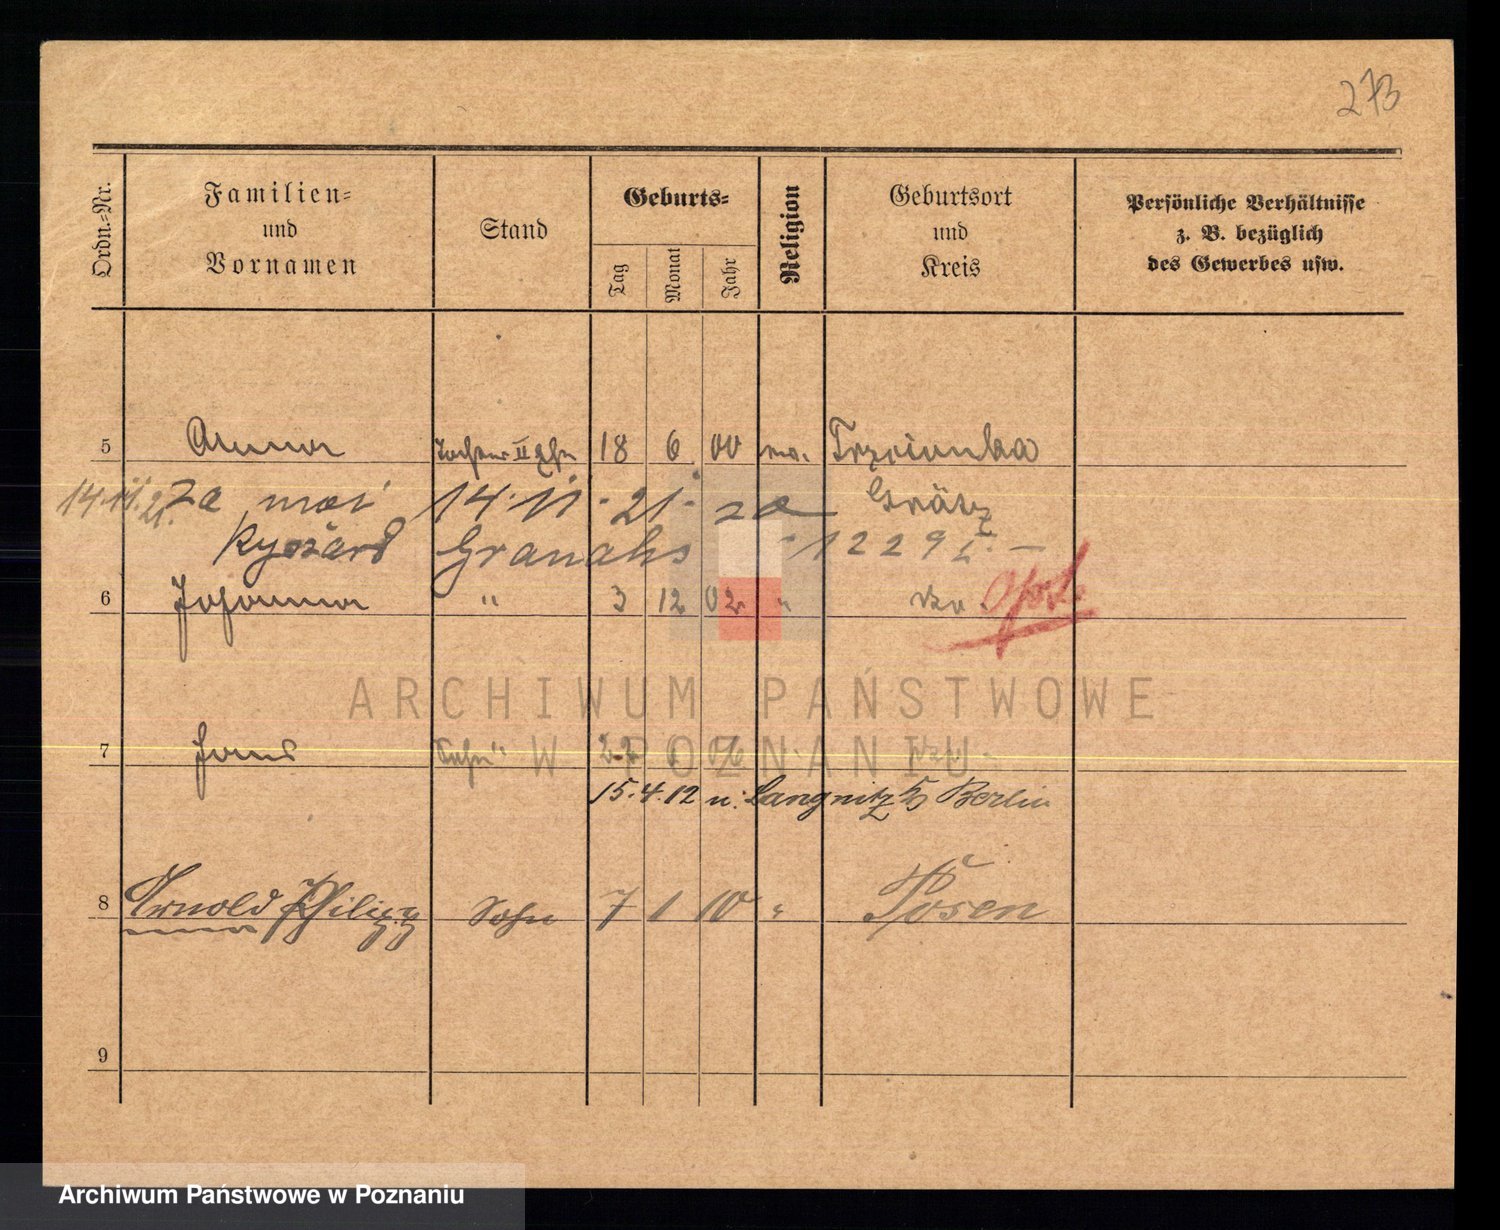 273
Ordn.-Nr.
Familien-
und
Vornamen
Stand
Geburts-
Tag
Monat
Jahr
Religion
Geburtsort
und
Kreis
Persönliche Verhältnisse
z. B. bezüglich
des Gewerbes usw.
5 Anna Tochter II 18 6 00 Trzcionka
14.11.21. za mąż 14.11.21. za Grätz
Ryszard 12291. —
6 Johanna " 3 12 02 "
7 Hans Sohn
15.4.12 n. Berlin
8 Arnold Philipp Sohn 7 1 10 " Posen
9
ARCHIWUM PAŃSTWOWE
W POZNANIU
Archiwum Państwowe w Poznaniu